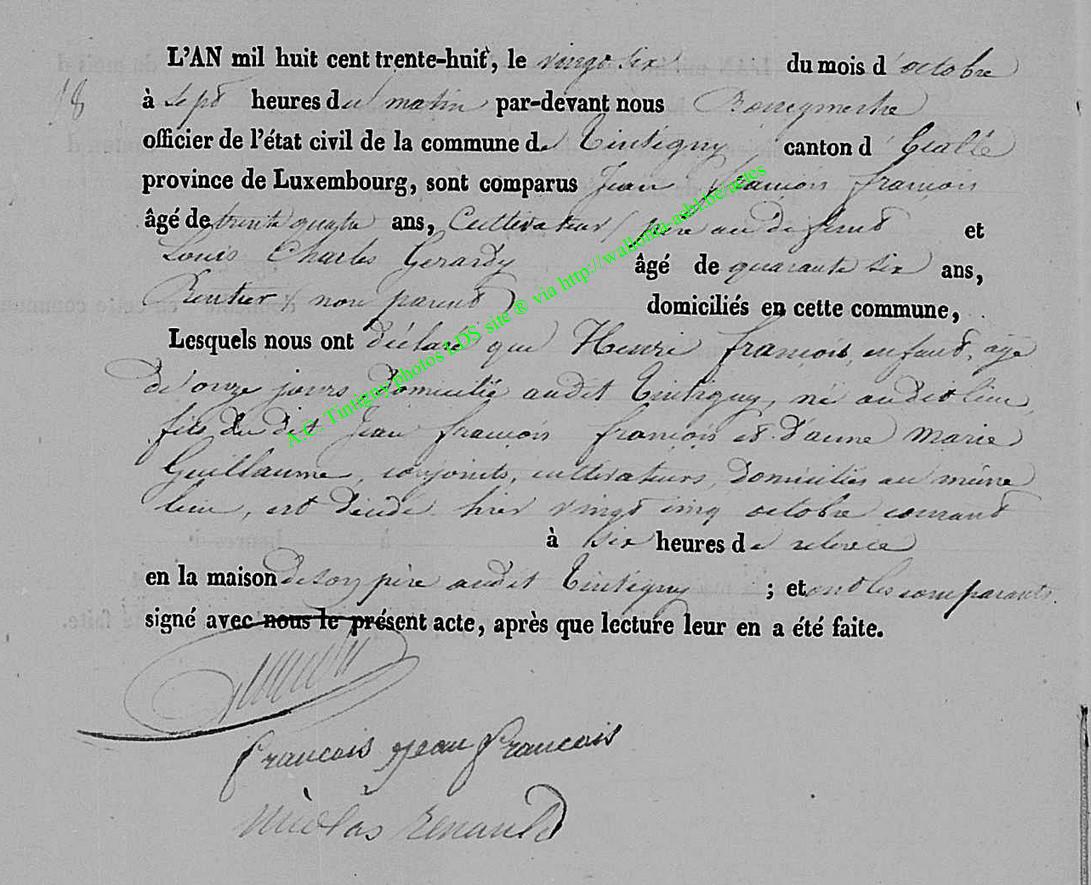 L'AN mil huit cent trente-huit, le vingt six du mois d'octobre
18 à sept heures du matin par-devant nous Bourgmestre
officier de l'état civil de la commune de Tintigny canton d'Etalle
province de Luxembourg, sont comparus Jean françois françois
âgé de trente quatre ans, Cultivateur, père au défunt et
Louis Charles Gerardy âgé de quarante six ans,
Rentier, non parent domiciliés en cette commune,
Lesquels nous ont déclaré que Henri françois, enfant, agé
de onze jours, domicilié audit Tintigny, né audit lieu,
fils du dit Jean françois françois et d'anne Marie
Guillaume, conjoints, cultivateurs, domiciliés au même
lieu, est décédé hier vingt cinq octobre courant
à six heures de relevée
en la maison de son père audit Tintigny ; et ont les comparants
signé avec nous le présent acte, après que lecture leur en a été faite.
françois jean françois
Nicolas Renauld
A.C. Tintigny photos LDS site ® via http://wallonia-asbl.be/actes